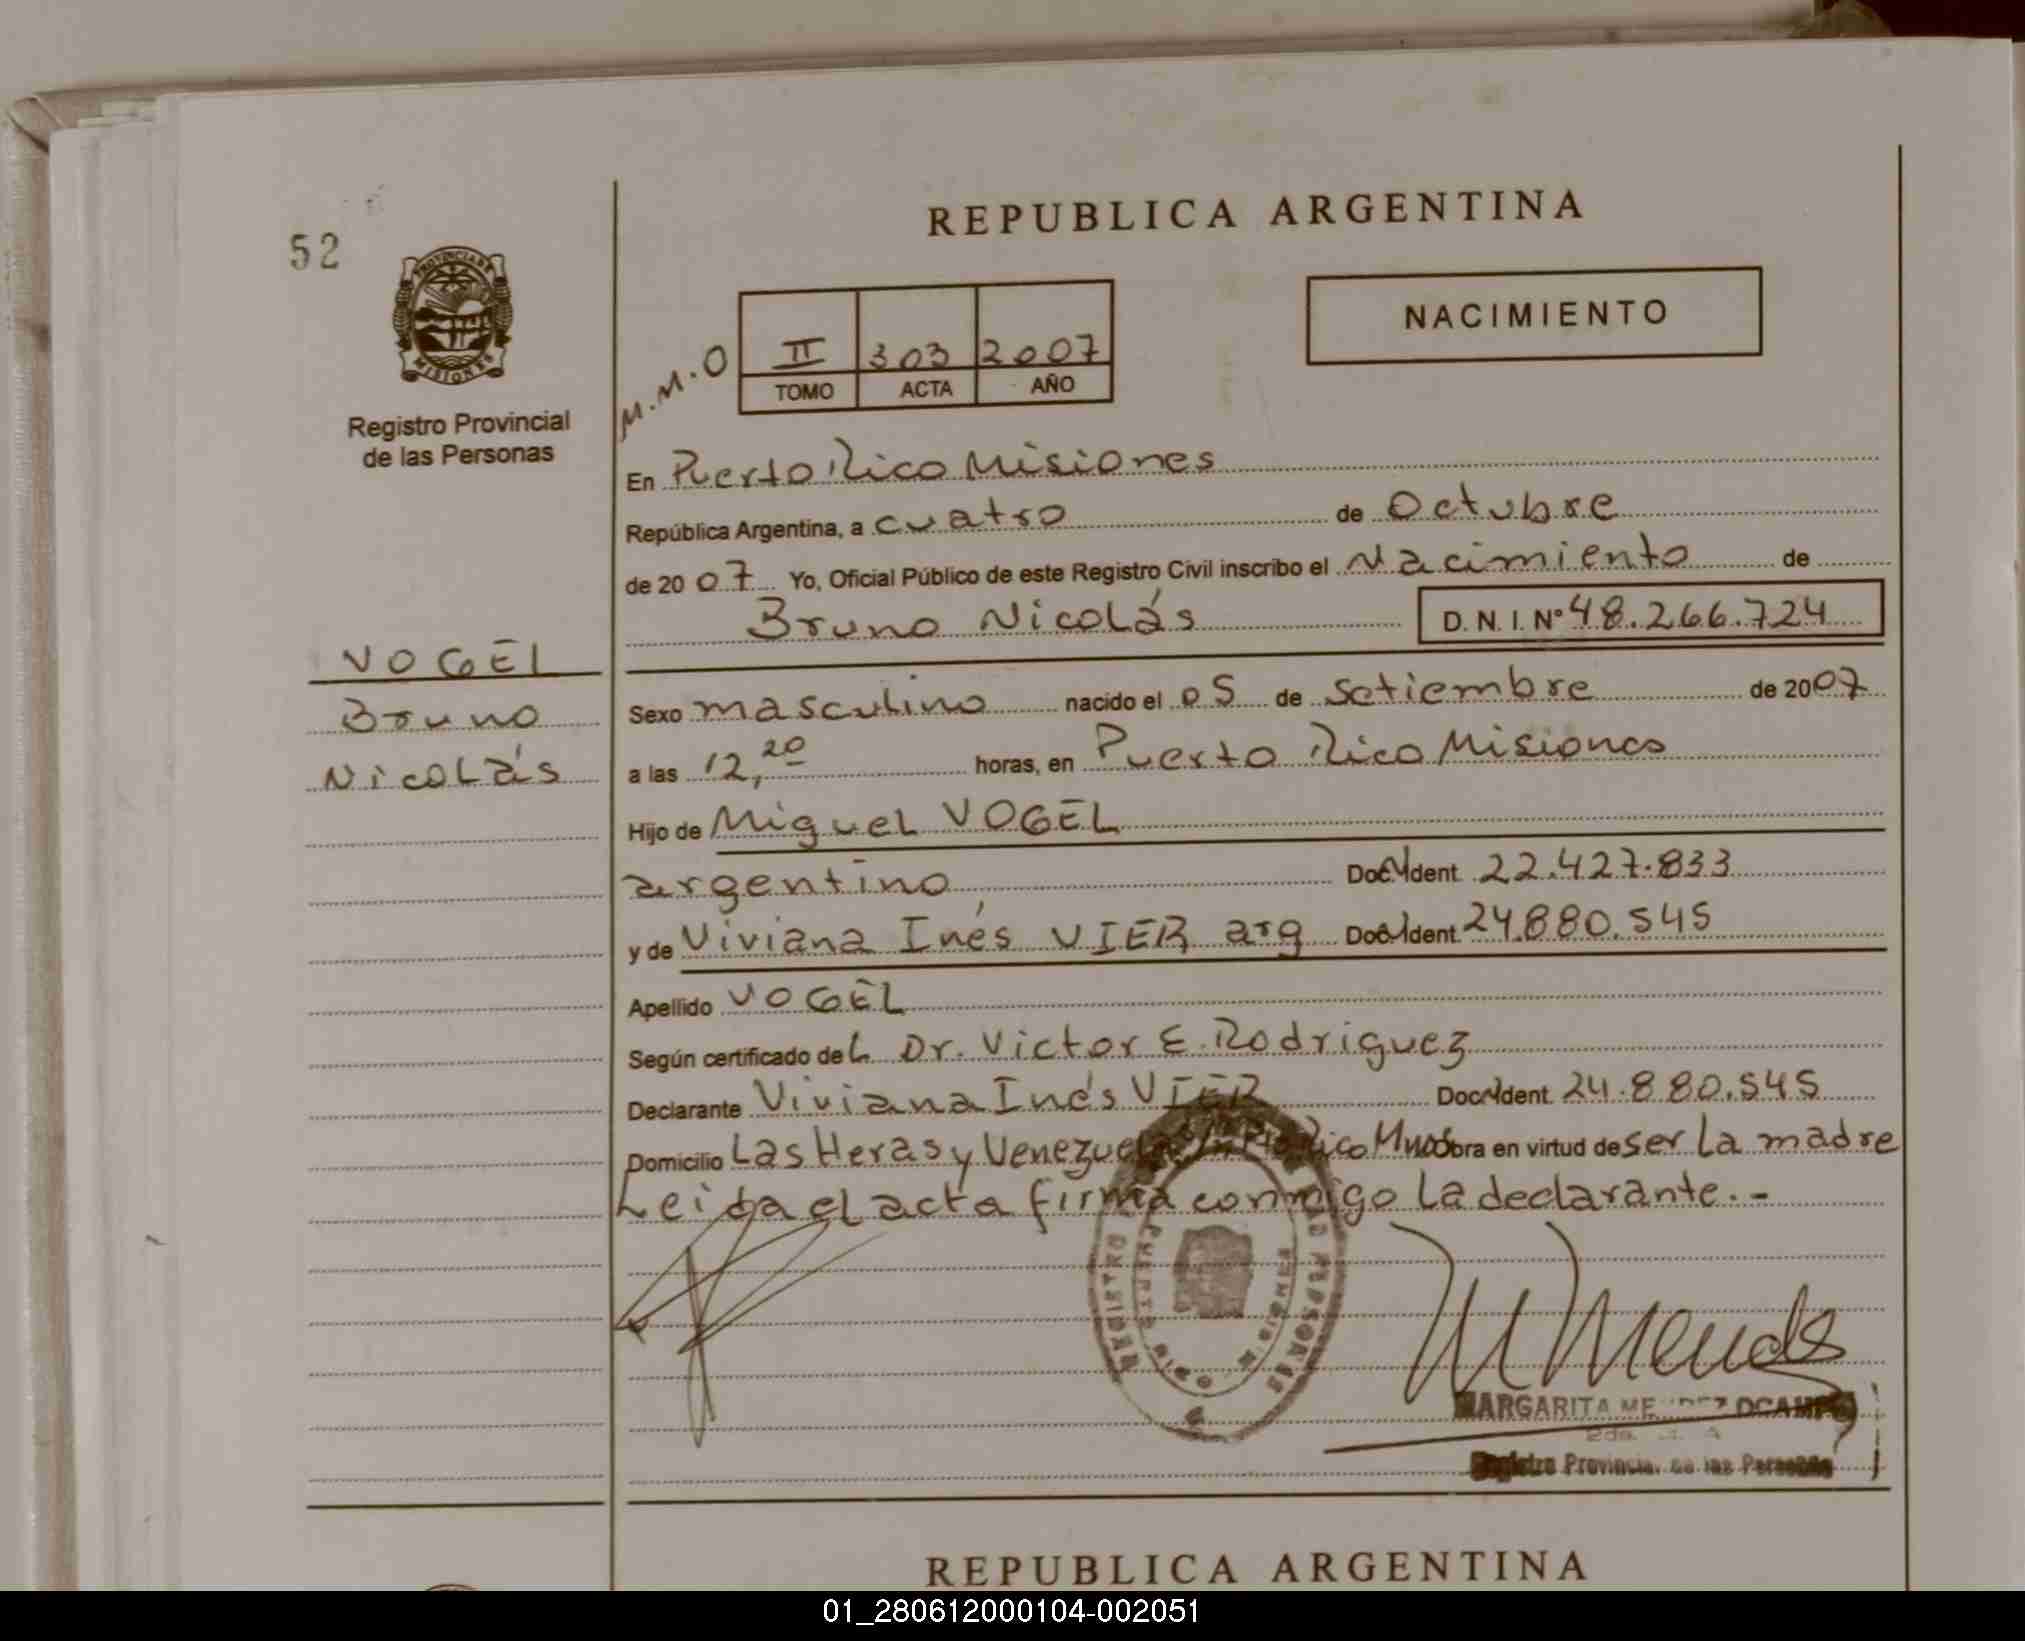 REPUBLICA ARGENTINA
52
PROVINCIA DE
MISIONES
Registro Provincial
de las Personas
NACIMIENTO
M.M.O
II 303 2007
TOMO ACTA AÑO
En Puerto Rico Misiones
República Argentina, a cuatro de Octubre
de 20 07 Yo, Oficial Público de este Registro Civil inscribo el Nacimiento de
Bruno Nicolás D. N. I. Nº 48.266.724
VOGEL
Bruno
Nicolás
Sexo masculino nacido el 05 de Setiembre de 2007
a las 12,20 horas, en Puerto Rico Misiones
Hijo de Miguel VOGEL
argentino Doc. Ident. 22.427.833
y de Viviana Inés VIER arg Doc. Ident. 24.880.545
Apellido VOGEL
Según certificado del Dr. Victor E. Rodriguez
Declarante Viviana Inés VIER Doc. Ident. 24.880.545
Domicilio Las Heras y Venezuela Rico Mnes obra en virtud de ser la madre
Leida el acta firma conmigo la declarante.-
REGISTRO PERSONAS
Puerto Misiones
M Mendez
MARGARITA OCAMPO
Registro Provincial de las Personas
REPUBLICA ARGENTINA
01_280612000104-002051